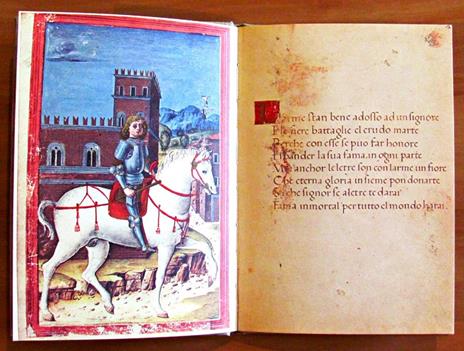 arme stan bene adosso ad un signore
fiere battaglie el crudo marte
Perche con esse se puo far honore
spander la sua fama, in ogni parte
Ma anchor le letre son con larme un fiore
Che eterna gloria in sieme pon donarte
che signor se a letre te darai
Fama inmortal per tutto el mondo harai